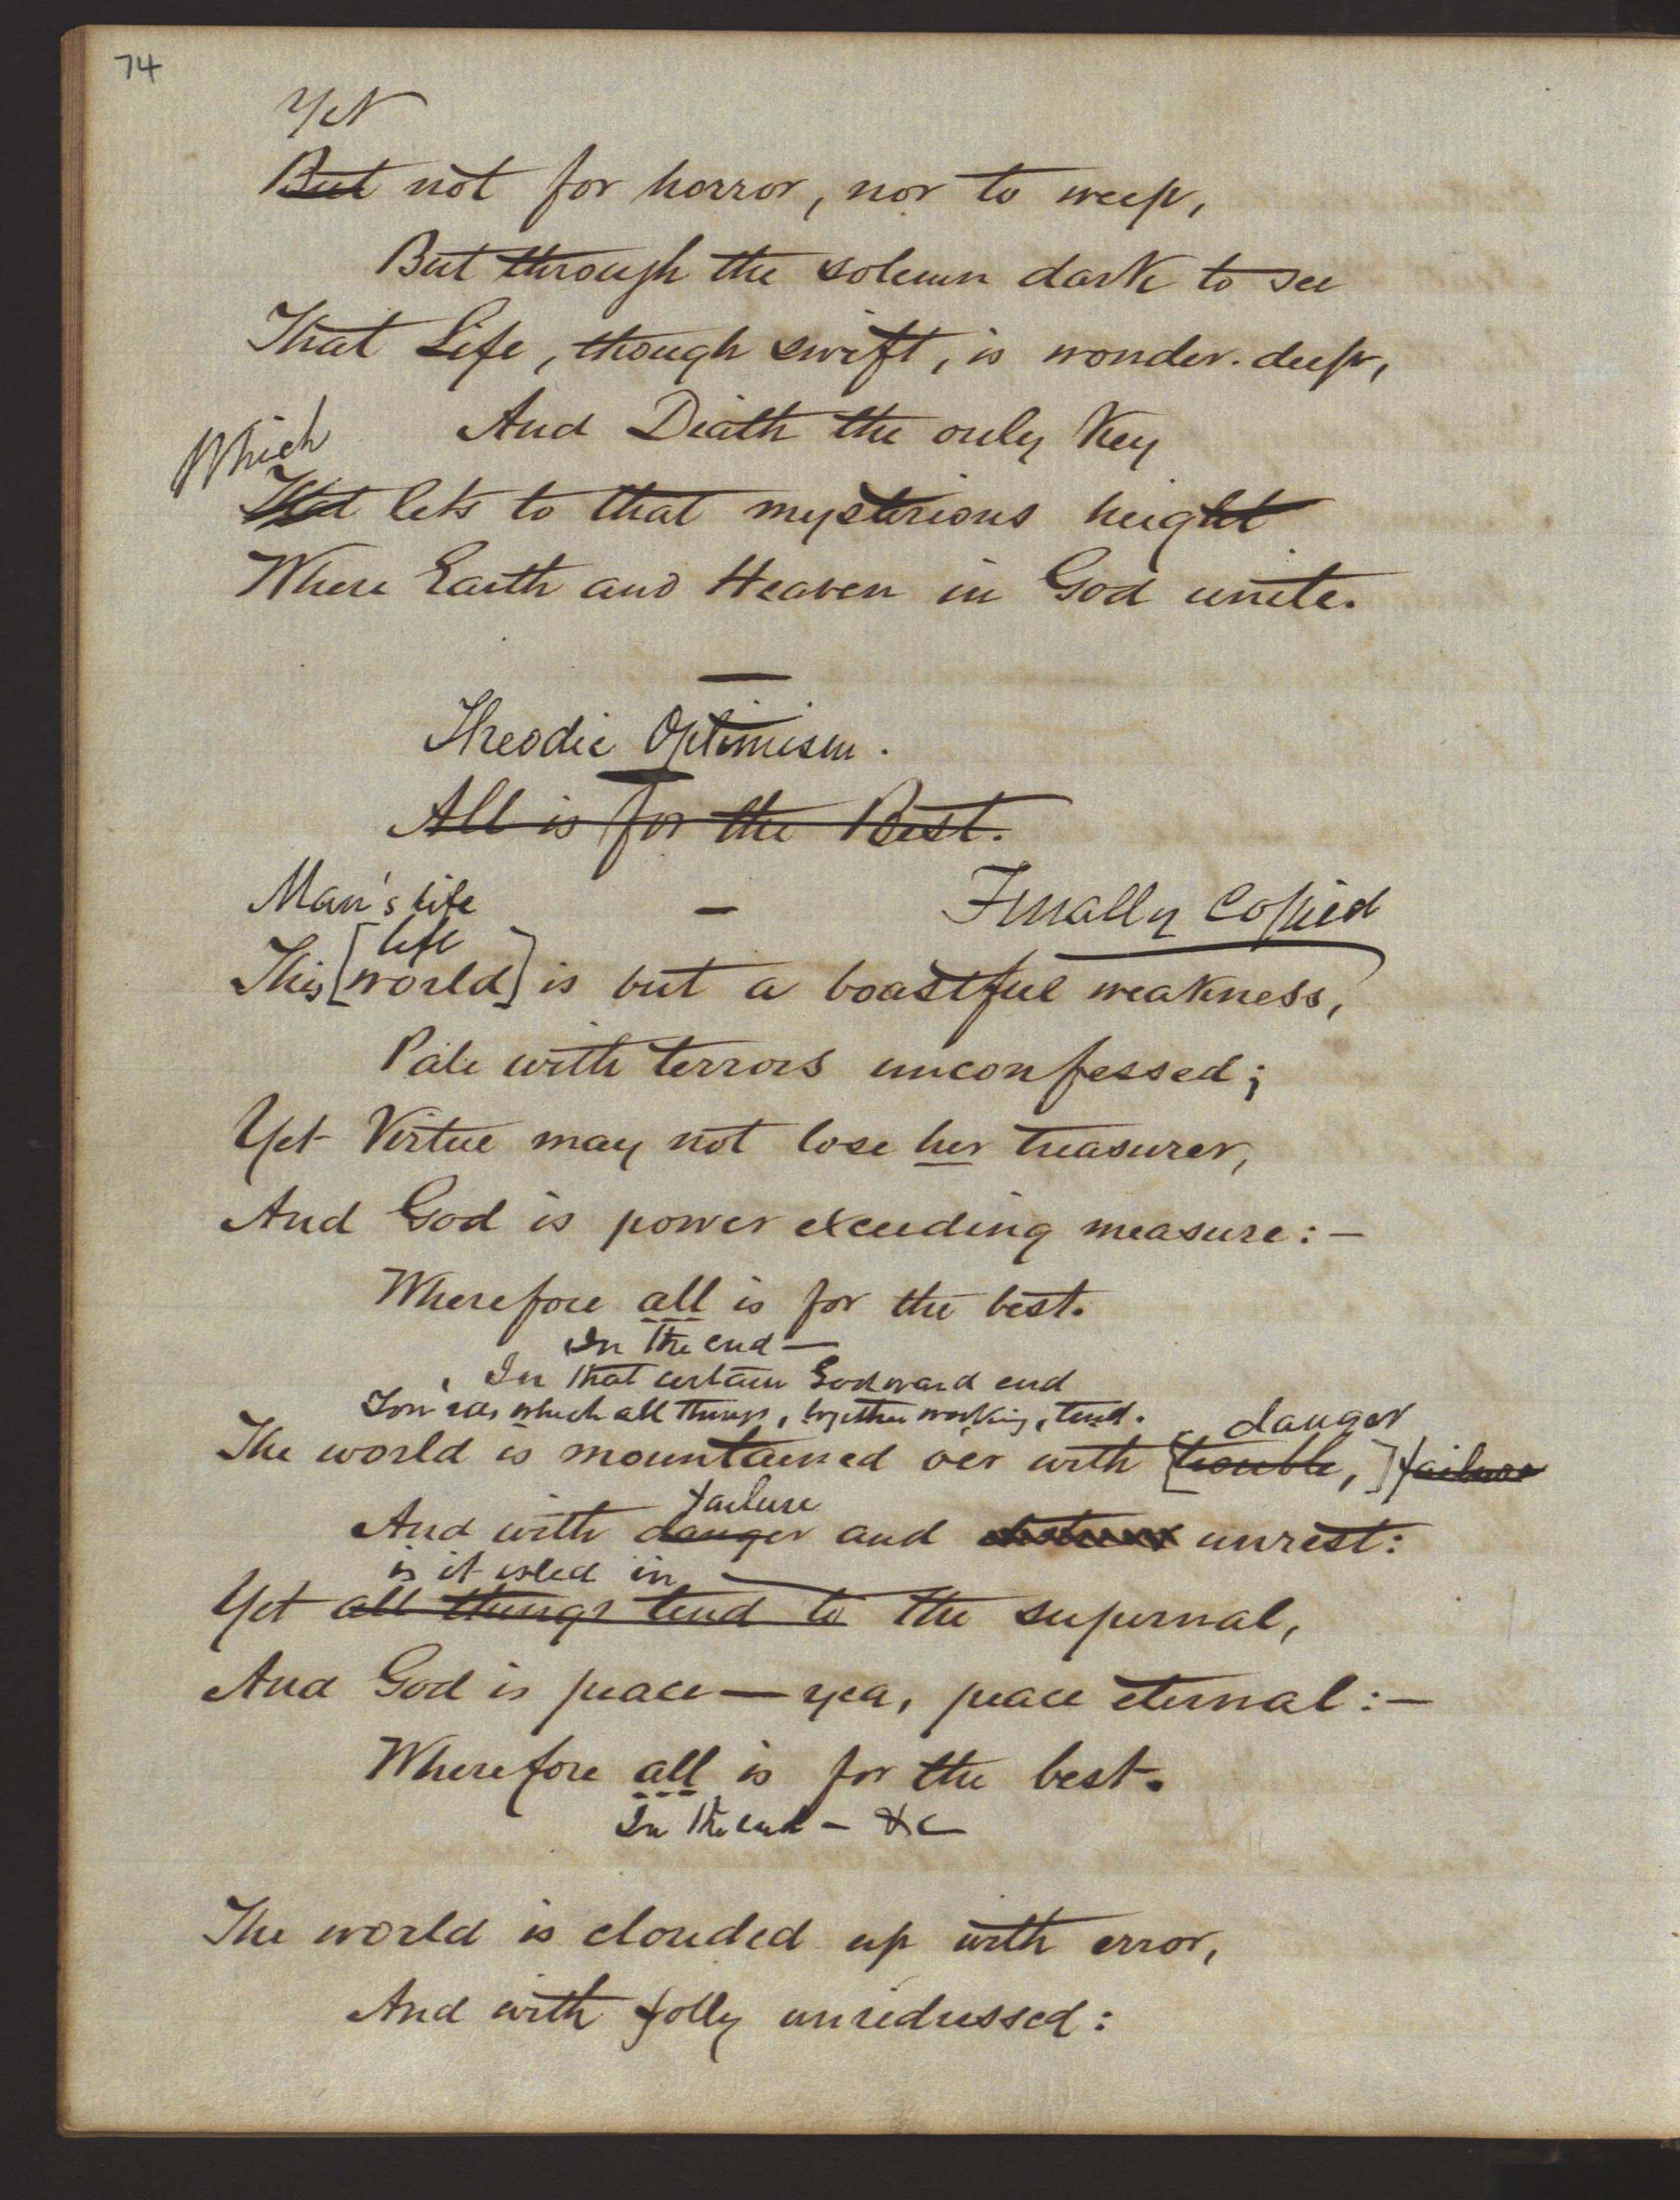 74
Yet
But not for horror, nor to weep,
But through the solemn dark to see
That Life, though swift, is wonder-deep,
And Death the only Key
Which
That lets to that mysterious height
Where Earth and Heaven in God unite.
Theodic Optimism.
All is for the Best.
Man's life
Finally Copied
life
This [world] is but a boastful weakness,
Pale with terrors unconfessed;
Yet Virtue may not lose her treasurer,
And God is power exceeding measure:—
Wherefore all is for the best.
In the end—
In that certain Godward end
which all things, together working, tend.
danger
The world is mountained oer with [trouble,] failure
failure
And with danger and unrest:
is it isled in
Yet all things tend to the supernal,
And God is peace—yea, peace eternal:—
Wherefore all is for the best.
In the end — &c
The world is clouded up with error,
And with folly unredressed: